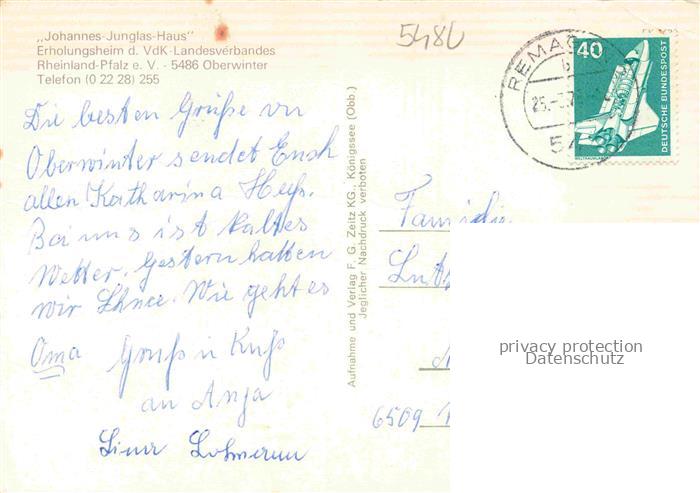 „Johannes-Junglas-Haus"
Erholungsheim d. VdK-Landesverbandes
Rheinland-Pfalz e. V. - 5486 Oberwinter
Telefon (0 22 28) 255
Die besten Grüße von
Oberwinter sendet Euch
allen Katharina
Bei uns ist kaltes
Wetter. Gestern hatten
wir Schnee. Wie geht es
Oma Gruß u Kuß
an Anja
Aufnahme und Verlag F. G. Zeitz KG., Königssee (Obb.)
Jeglicher Nachdruck verboten
5480
REMAG
25.
54
40
DEUTSCHE BUNDESPOST
WELTRAUMLABOR
Familie
Lutz
6509
privacy protection
Datenschutz